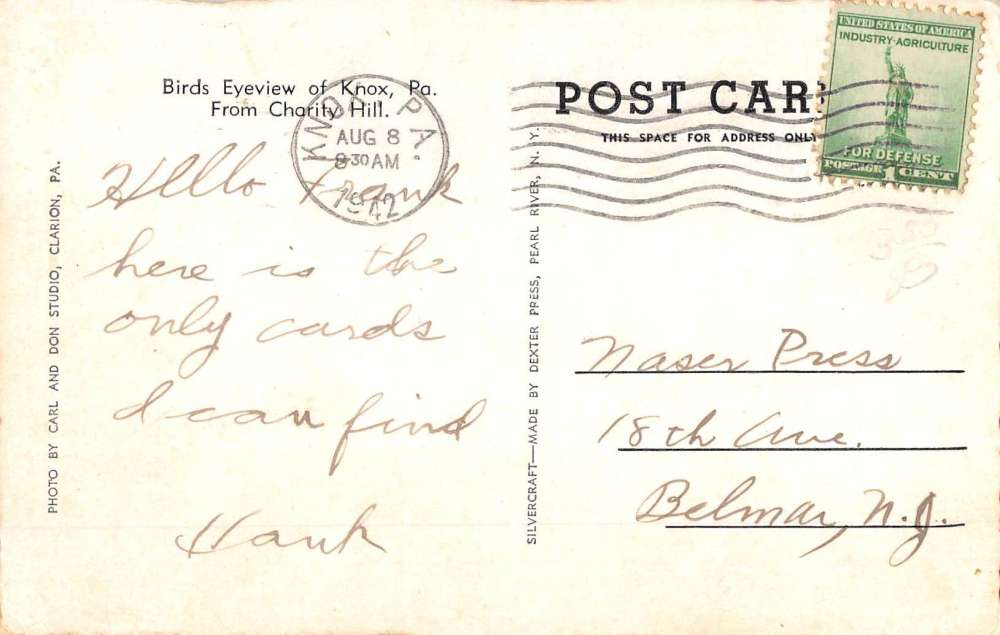 Birds Eyeview of Knox, Pa.
From Charity Hill.
KNOX PA.
AUG 8
8 30 AM
1942
Hello Frank
here is the
only cards
I can find
Hank
PHOTO BY CARL AND DON STUDIO, CLARION, PA.
SILVERCRAFT—MADE BY DEXTER PRESS, PEARL RIVER, N. Y.
POST CAR
THIS SPACE FOR ADDRESS ONLY
UNITED STATES OF AMERICA
INDUSTRY·AGRICULTURE
FOR DEFENSE
POSTAGE 1 CENT
Naser Press
18th Ave.
Belmar, N.J.